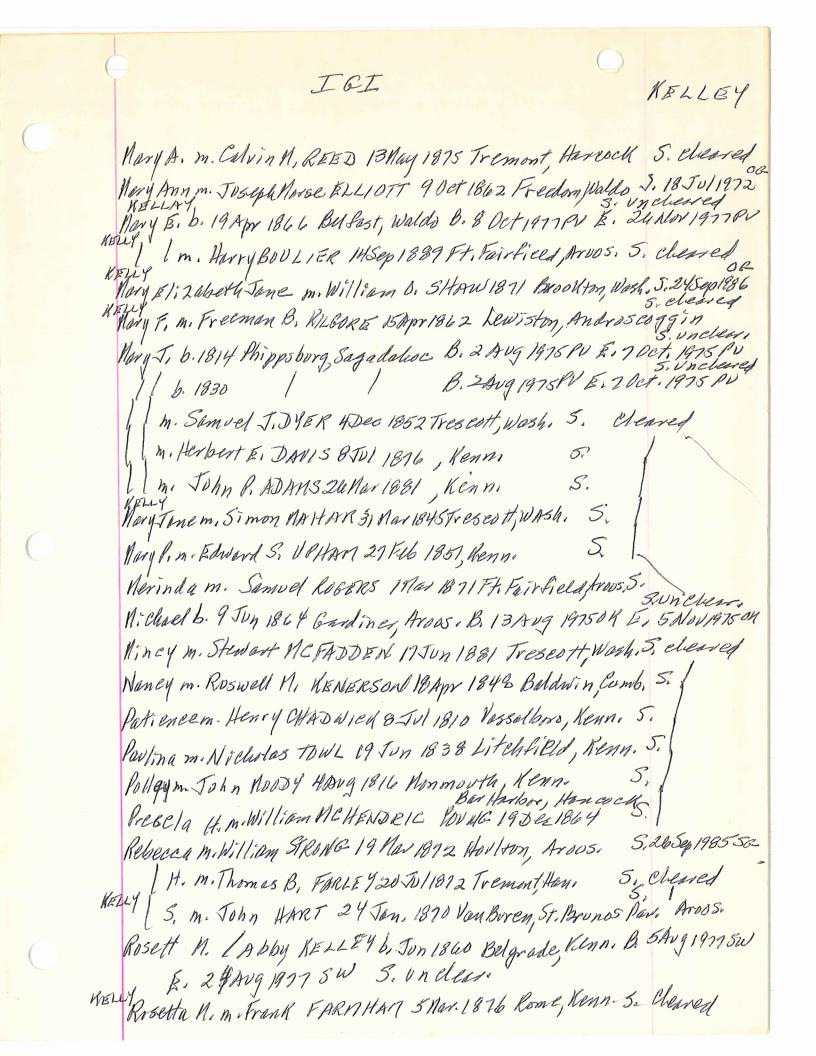 IGI
KELLEY
Mary A. m. Calvin M. REED 13 May 1875 Tremont, Hancock S. cleared
Mary Ann m. Joseph Morse ELLIOTT 9 Oct 1862 Freedom, Waldo S. 18 Jul 1972 OG
KELLAY S. uncleared
Mary E. b. 19 Apr 1866 Belfast, Waldo B. 8 Oct 1977 PV E. 26 Nov 1977 PV
KELLY
m. Harry BOULIER 14 Sep 1889 Ft. Fairfield, Aroos. S. cleared
KELLY OG
Mary Elizabeth Jane m. William O. SHAW 1871 Brookton, Wash. S. 24 Sep 1986
KELLY S. cleared
Mary F. m. Freeman B. KILGORE 15 Apr 1862 Lewiston, Androscoggin
S. unclear.
Mary J. b. 1814 Phippsburg, Sagadahoc B. 2 Aug 1975 PV E. 7 Oct. 1975 PV
S. uncleared
" b. 1830 B. 2 Aug 1975 PV E. 7 Oct. 1975 PV
m. Samuel J. DYER 4 Dec 1852 Trescott, Wash. S. cleared
m. Herbert E. DAVIS 8 Jul 1876, Kenn. S.
m. John P. ADAMS 26 Mar 1881, Kenn. S.
KELLY
Mary Jane m. Simon MAHAR 31 Mar 1845 Trescott, Wash. S.
Mary P. m. Edward S. UPHAM 27 Feb 1851, Kenn. S.
Merinda m. Samuel ROGERS 1 Mar 1871 Ft. Fairfield, Aroos. S.
S. unclear.
Michael b. 9 Jun 1864 Gardiner, Aroos. B. 13 Aug 1975 OK E. 5 Nov 1975 OK
Mincy m. Stewart MCFADDEN 17 Jun 1881 Trescott, Wash. S. cleared
Nancy m. Roswell M. KENERSON 18 Apr 1848 Baldwin, Cumb. S.
Patience m. Henry CHADWICK 8 Jul 1810 Vassalboro, Kenn. S.
Paulina m. Nicholas TOWL 19 Jun 1838 Litchfield, Kenn. S.
Polley m. John MOODY 4 Aug 1816 Monmouth, Kenn. S.
Bar Harbor, Hancock
Presela H. m. William MCHENDRIC YOUNG 19 Dec 1864 S.
Rebecca m. William STRONG 19 Mar 1872 Houlton, Aroos. S. 26 Sep 1985 SG
H. m. Thomas B. FARLEY 20 Jul 1872 Tremont, Han. S. cleared
KELLY S. m. John HART 24 Jan. 1870 Van Buren, St. Brunos Par. Aroos. S. "
Rosett M. / Abby KELLEY b. Jun 1860 Belgrade, Kenn. B. 5 Aug 1977 SW
E. 24 Aug 1977 SW S. unclear.
KELLY
Rosetta M. m. Frank FARNHAM 5 Mar. 1876 Rome, Kenn. S. Cleared